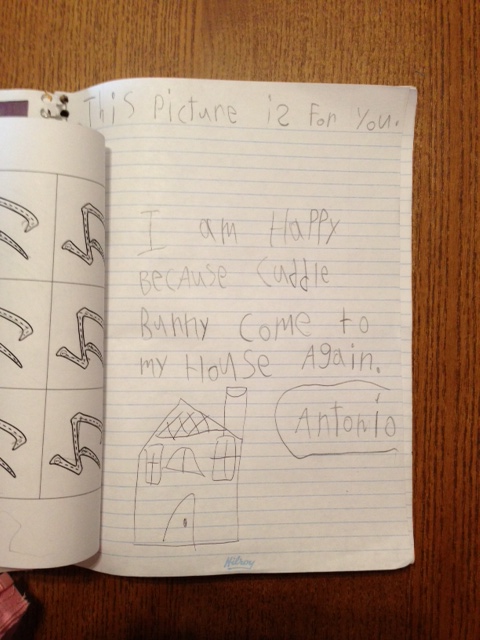 This Picture is For You.
I am Happy
Because Cuddle
Bunny Come to
my House Again.
Antonio
Hilroy